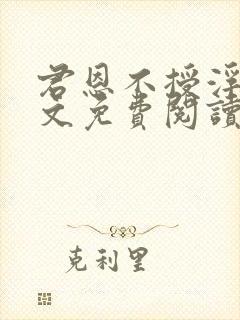 君恩不授淫
文免費閱讀
克利里